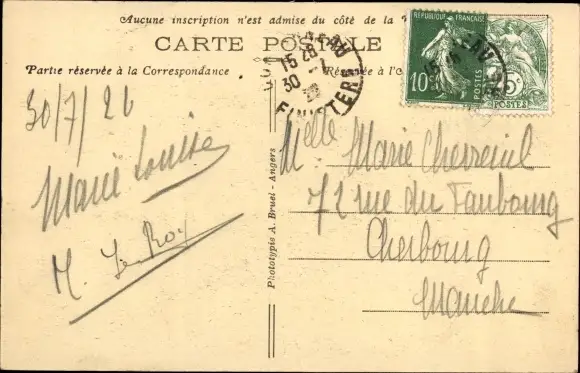 Aucune inscription n'est admise du côté de la
CARTE POSTALE
Partie réservée à la Correspondance
Réservée à l'
REPUBLIQUE FRANÇAISE
10
POSTES
5c
POSTES
15 28
30 -7
26
FINISTERE
30/7/26
Marie Louise
M. Le Roy
Phototypie A. Bruel - Angers
Melle Marie Chevreuil
72 rue du Faubourg
Cherbourg
Manche